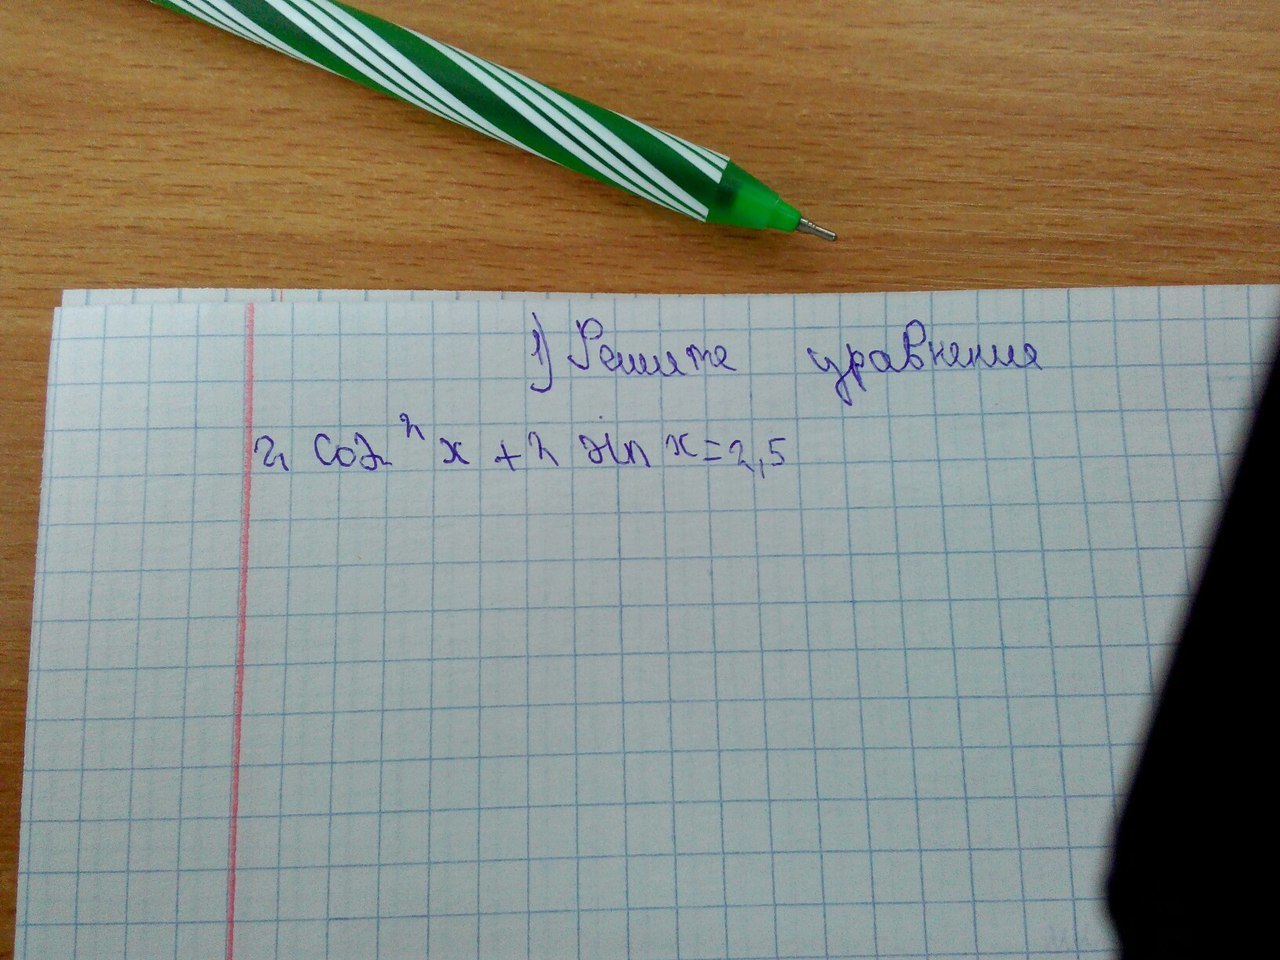 1) Решите уравнения
2 cos² x + 2 sin x = 2,5